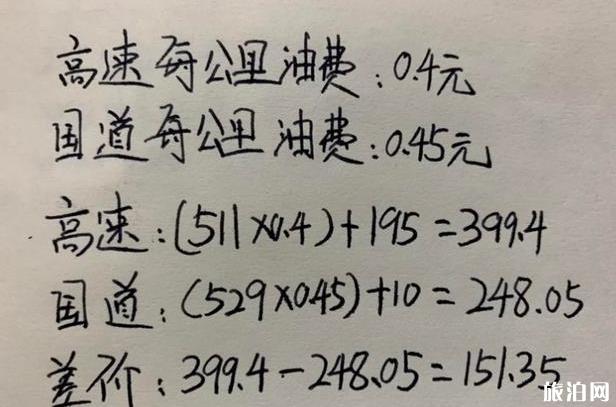 高速每公里油费:0.4元
国道每公里油费:0.45元
高速:(511×0.4)+195=399.4
国道:(529×0.45)+10=248.05
差价:399.4-248.05=151.35
旅泊网